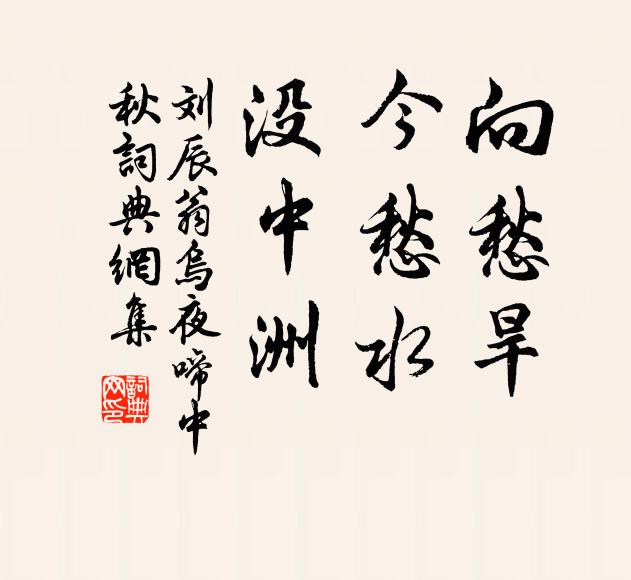 向愁旱
今愁水
没中洲
刘辰翁乌夜啼中
秋詞典網集
詞典
网印